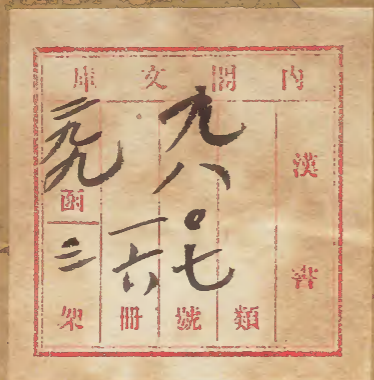 内閣文庫
漢書
類
九八〇七號
一六冊
二九九函
三架